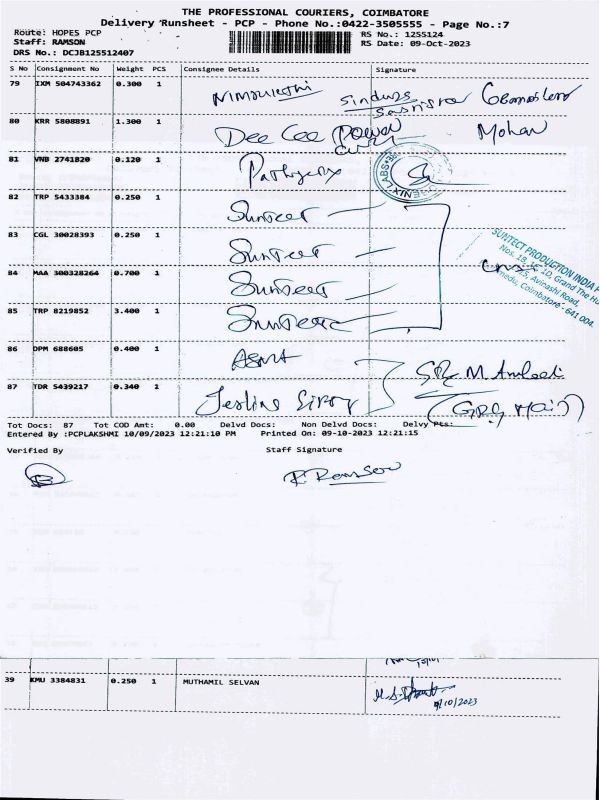 THE PROFESSIONAL COURIERS, COIMBATORE
Delivery Runsheet - PCP - Phone No.:0422-3505555 - Page No.:7
Route: HOPES PCP RS No.: 1255124
Staff: RAMSON RS Date: 09-Oct-2023
DRS No.: DCJB125512407
S No Consignment No Weight PCS Consignee Details Signature
79 IXM 504743362 0.300 1
80 KRR 5808891 1.300 1 Dee Cee Power Mohan
81 VNB 2741820 0.120 1
82 TRP 5433384 0.250 1 Suntect
83 CGL 30028393 0.250 1 Suntect
84 MAA 300328264 0.700 1 Suntect
85 TRP 8219852 3.400 1 Suntect
SUNTECT PRODUCTION INDIA P
Nos. 18, 1E 10, Grand The Hu
Avinashi Road,
Coimbatore - 641 004.
86 DPM 688605 0.400 1
87 TDR 5439217 0.340 1
Tot Docs: 87 Tot COD Amt: 0.00 Delvd Docs: Non Delvd Docs: Delvy Pts:
Entered By :PCPLAKSHMI 10/09/2023 12:21:10 PM Printed On: 09-10-2023 12:21:15
Verified By Staff Signature
R. Ramson
39 KMU 3384831 0.250 1 MUTHAMIL SELVAN
9/10/2023